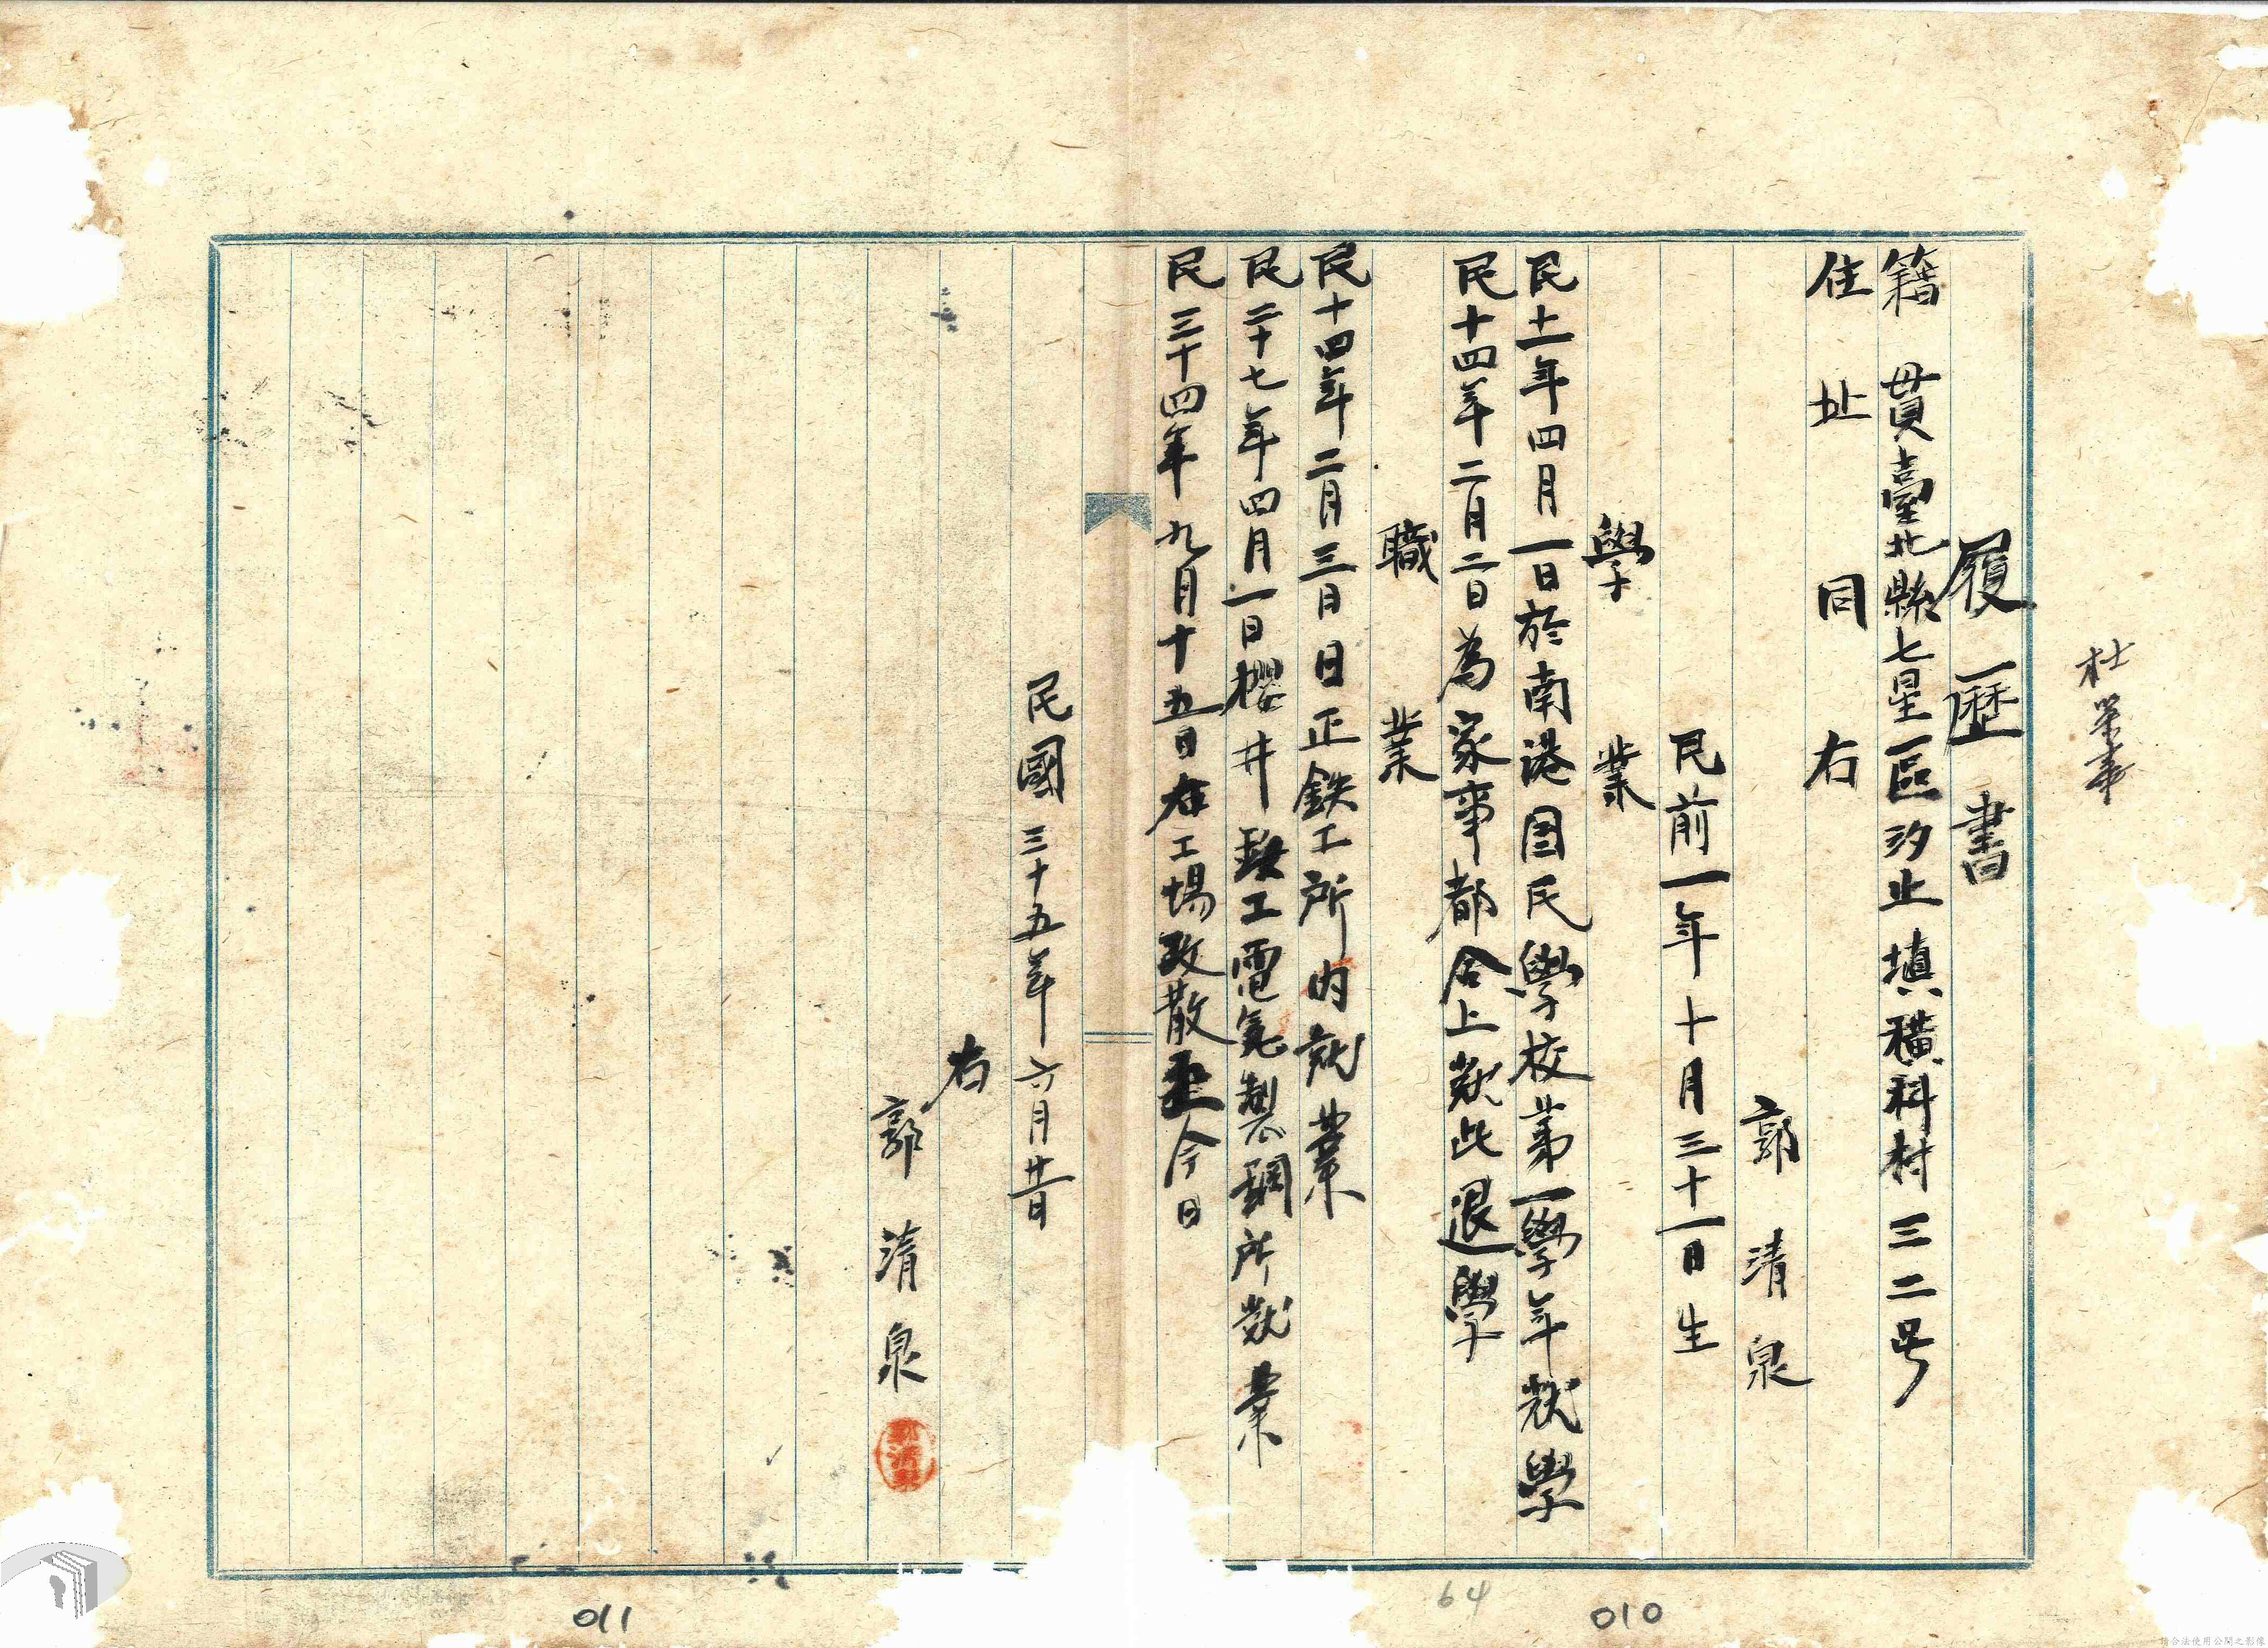 履歷書
籍 貫臺北縣七星區汐止填橫科村三二号
住址同右
郭清泉
民前一年十月三十一日生
學業
民十一年四月一日於南港国民學校第一學年就學
民十四年二月二日為家事都合上就此退學
職業
民十四年二月三日日正鉄工所內就業
民二十七年四月一日櫻井鉄工電気製鋼所就業
民三十四年九月十五日在工場改散至今日
民國三十五年六月廿日
右
郭清泉
郭清泉
64
010
011